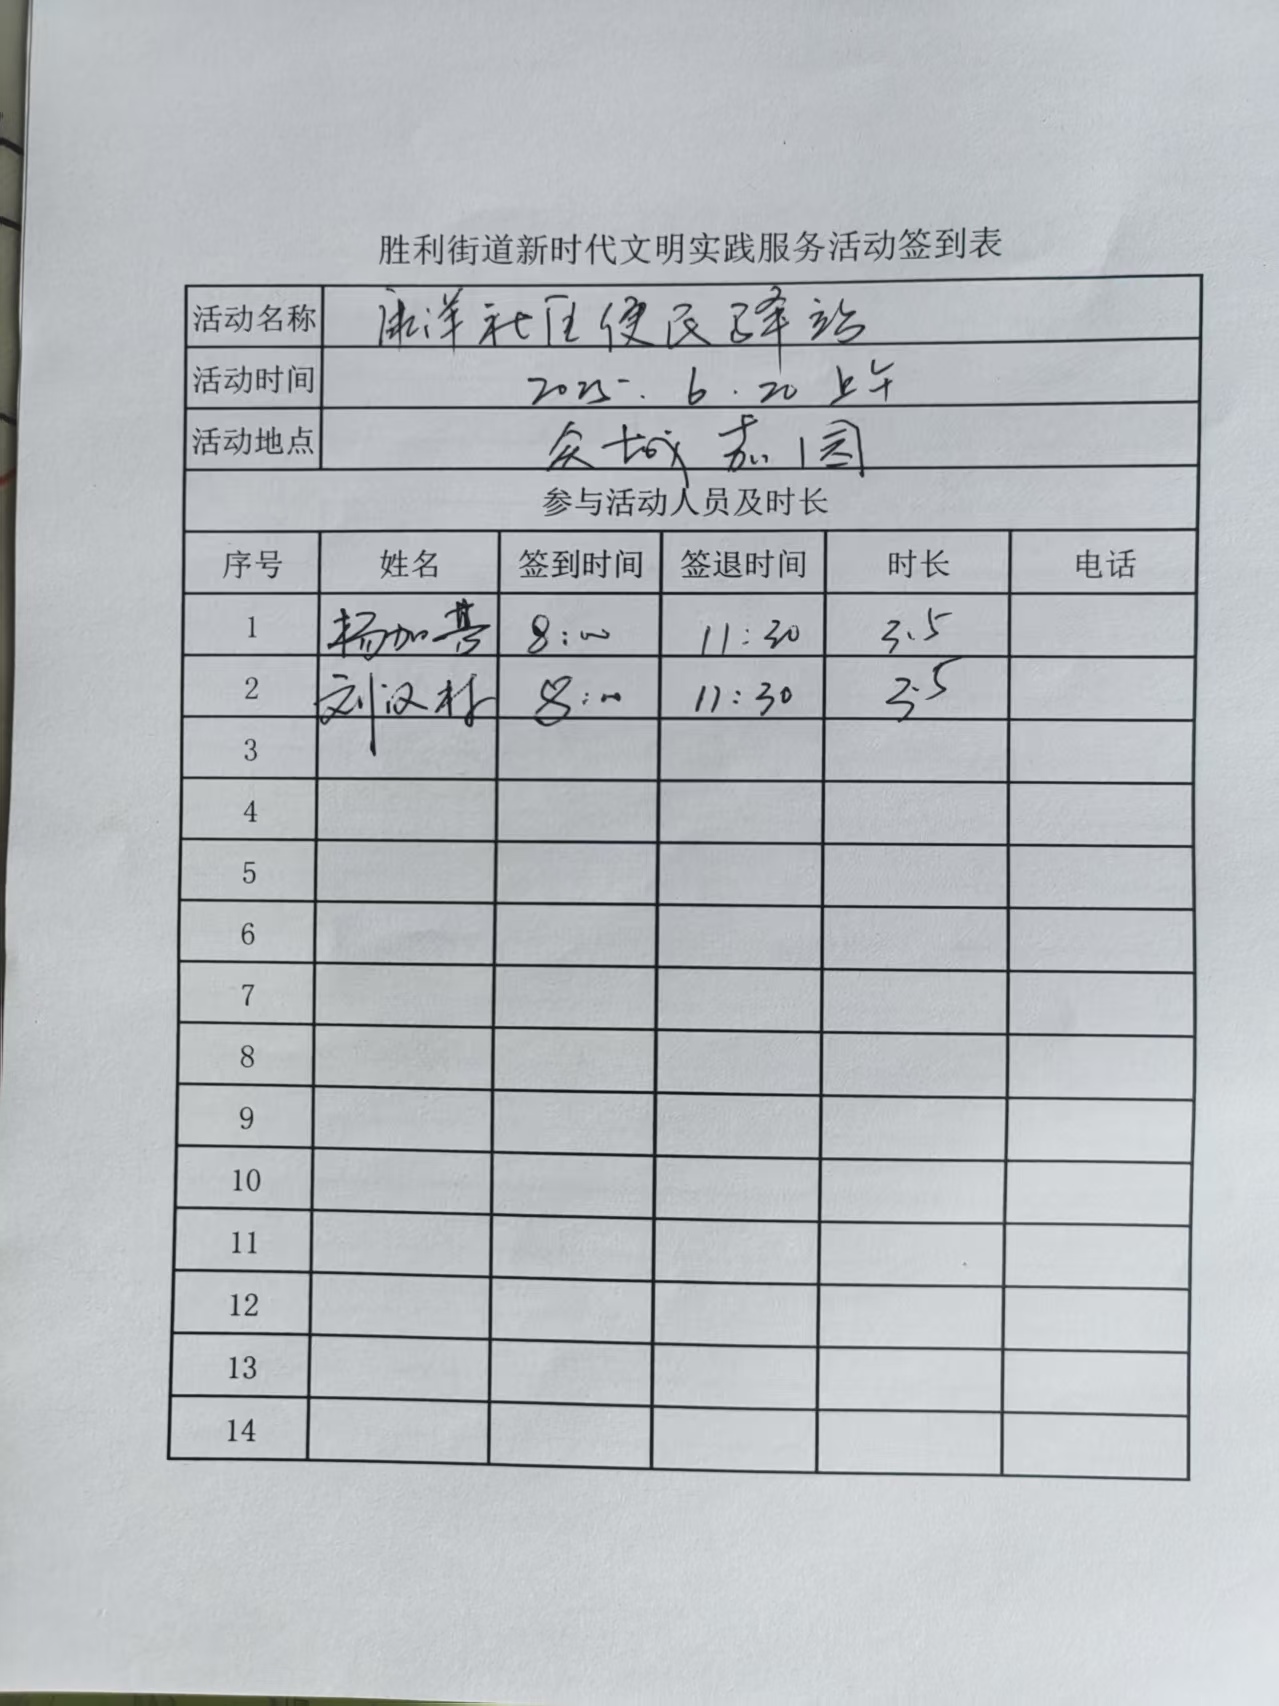 胜利街道新时代文明实践服务活动签到表
活动名称 康洋社区便民驿站
活动时间 2025.6.20 上午
活动地点 众城嘉园
参与活动人员及时长
序号 姓名 签到时间 签退时间 时长 电话
1 杨加 8:00 11:30 3.5
2 刘汉林 8:00 11:30 3.5
3
4
5
6
7
8
9
10
11
12
13
14